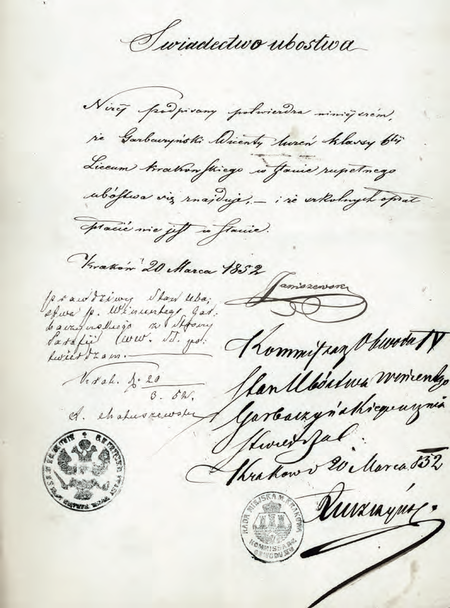 Świadectwo ubóstwa
Niżej podpisany potwierdza niniejszém,
że Garbaczyński Wincenty uczeń klassy 6téj
Liceum Krakowskiego w stanie zupełnego
ubóstwa się znajduje, — i że szkolnych opłat
płacić nie jest w stanie.
Kraków 20 Marca 1852
Janiszewski
prawdziwy Stan Ubó-
stwa p. Wincentego Gar-
baczyńskiego z strony
Parafii
twierdzam
Krak. d. 20
3. 52.
Kommissarz Obwodu IV
Stan Ubóstwa Wincentego
Garbaczyńskiego
Stwierdzał
Kraków 20 Marca 852
RADA MIEJSKA M. KRAKOWA
KOMMISSARZ